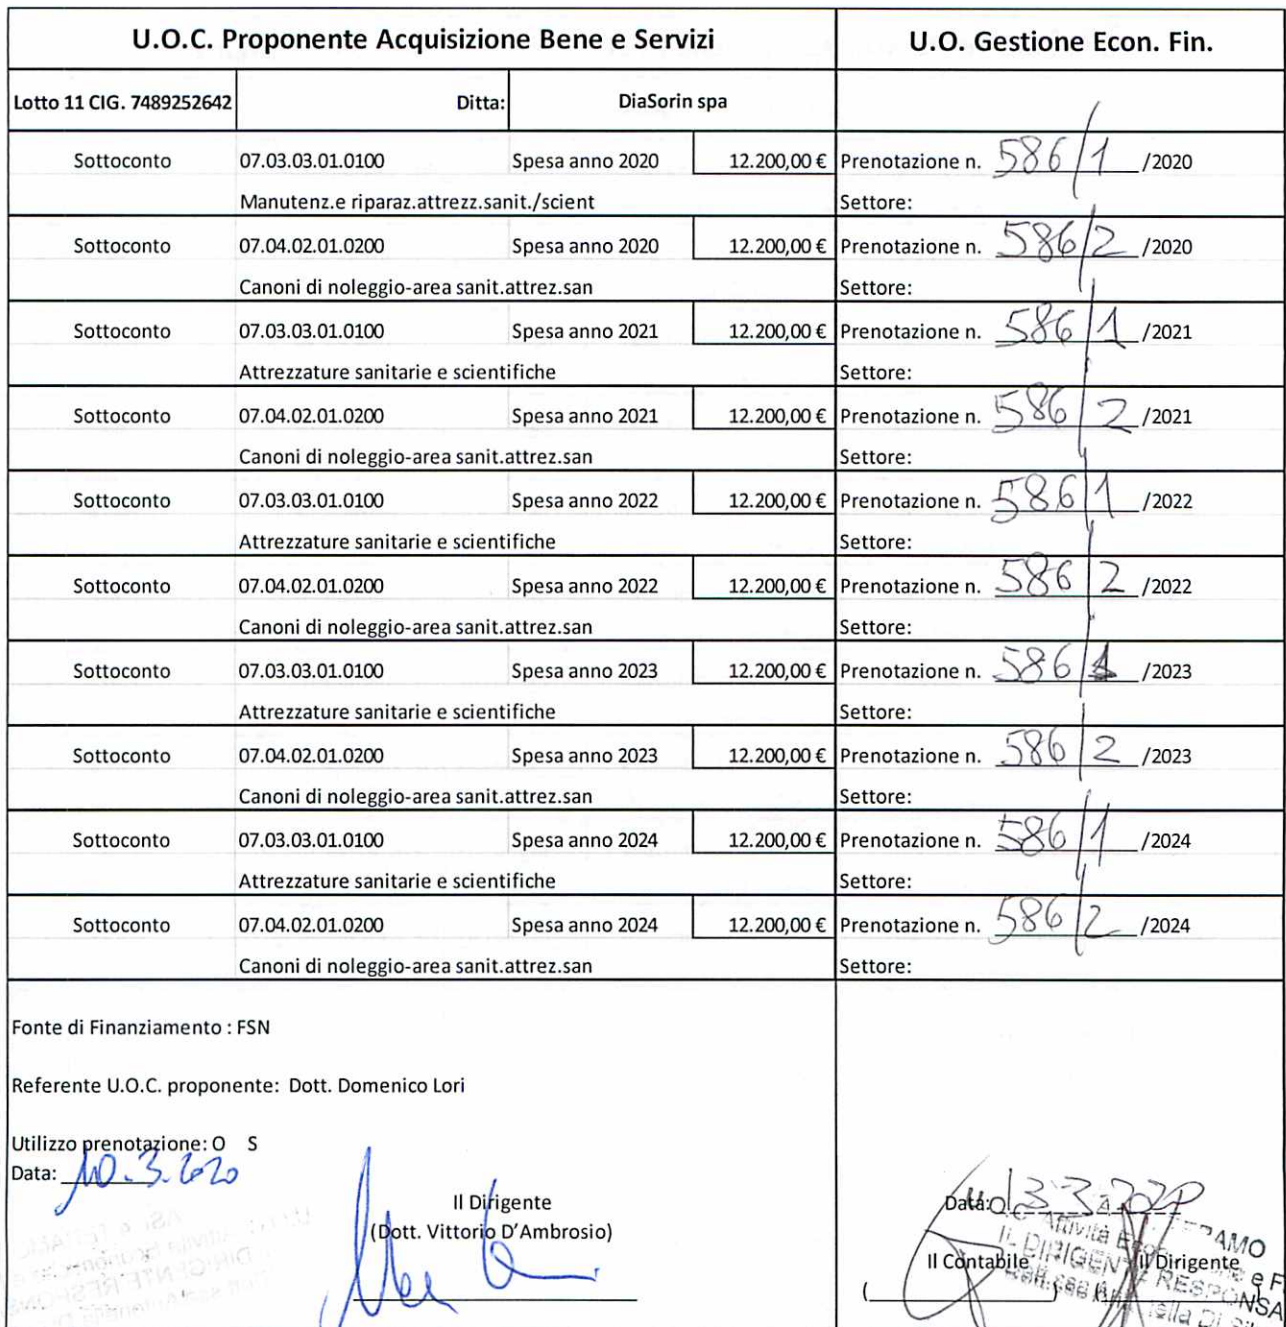 U.O.C. Proponente Acquisizione Bene e Servizi U.O. Gestione Econ. Fin.
Lotto 11 CIG. 7489252642 Ditta: DiaSorin spa
Sottoconto 07.03.03.01.0100 Spesa anno 2020 12.200,00 € Prenotazione n. 586/1 /2020
Manutenz.e riparaz.attrezz.sanit./scient Settore:
Sottoconto 07.04.02.01.0200 Spesa anno 2020 12.200,00 € Prenotazione n. 586/2 /2020
Canoni di noleggio-area sanit.attrez.san Settore:
Sottoconto 07.03.03.01.0100 Spesa anno 2021 12.200,00 € Prenotazione n. 586/1 /2021
Attrezzature sanitarie e scientifiche Settore:
Sottoconto 07.04.02.01.0200 Spesa anno 2021 12.200,00 € Prenotazione n. 586/2 /2021
Canoni di noleggio-area sanit.attrez.san Settore:
Sottoconto 07.03.03.01.0100 Spesa anno 2022 12.200,00 € Prenotazione n. 586/1 /2022
Attrezzature sanitarie e scientifiche Settore:
Sottoconto 07.04.02.01.0200 Spesa anno 2022 12.200,00 € Prenotazione n. 586/2 /2022
Canoni di noleggio-area sanit.attrez.san Settore:
Sottoconto 07.03.03.01.0100 Spesa anno 2023 12.200,00 € Prenotazione n. 586/1 /2023
Attrezzature sanitarie e scientifiche Settore:
Sottoconto 07.04.02.01.0200 Spesa anno 2023 12.200,00 € Prenotazione n. 586/2 /2023
Canoni di noleggio-area sanit.attrez.san Settore:
Sottoconto 07.03.03.01.0100 Spesa anno 2024 12.200,00 € Prenotazione n. 586/1 /2024
Attrezzature sanitarie e scientifiche Settore:
Sottoconto 07.04.02.01.0200 Spesa anno 2024 12.200,00 € Prenotazione n. 586/2 /2024
Canoni di noleggio-area sanit.attrez.san Settore:
Fonte di Finanziamento : FSN
Referente U.O.C. proponente: Dott. Domenico Lori
Utilizzo prenotazione: O S
Data: 10.3.2020
Il Dirigente Data:
(Dott. Vittorio D'Ambrosio)
Il Contabile Il Dirigente
IL DIRIGENTE